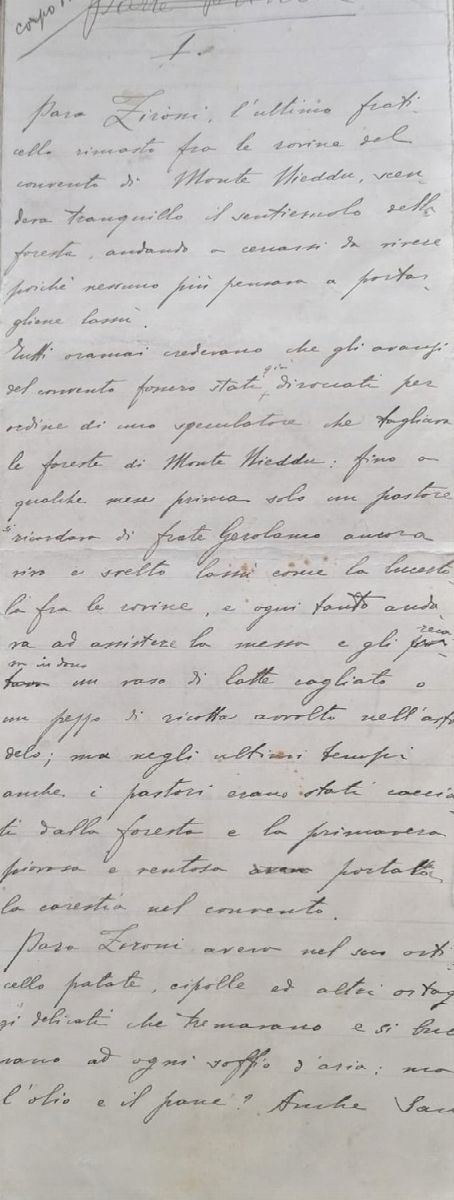 corpo
Parte
1.
Para Zironi, l'ultimo frati-
cello rimasto fra le rovine del
convento di Monte Nieddu, scen-
deva tranquillo il sentieruolo della
foresta, andando a cercarsi da vivere
poiché nessuno più pensava a portar-
gliene lassù.
Tutti oramai credevano che gli avanzi
del convento fossero stati già diroccati per
ordine di uno speculatore che tagliava
le foreste di Monte Nieddu: fino a
qualche mese prima solo un pastore
si ricordava di frate Gerolamo ancora
vivo e svelto lassù come la lucerto-
la fra le rovine, e ogni tanto anda-
va ad assistere la messa e gli reca-
va in dono un vaso di latte cagliato o
un pezzo di ricotta avvolto nell'asfo
delo; ma negli ultimi tempi
anche i pastori erano stati caccia
ti dalla foresta e la primavera
piovosa e ventosa portata
la carestia nel convento.
Para Zironi aveva nel suo orti-
cello patate, cipolle ed altri ortag
gi delicati che tremavano e si buc
vano ad ogni soffio d'aria: ma
l'olio e il pane? Anche San